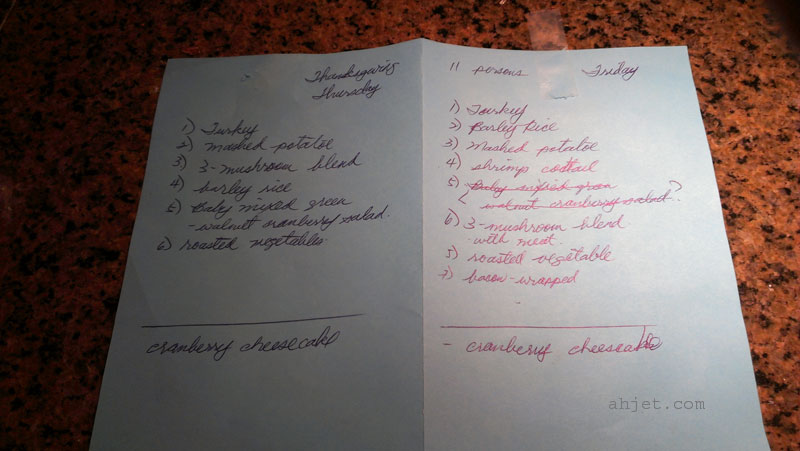 Thanksgiving
Thursday
1) Turkey
2) mashed potatoe
3) 3-mushroom blend
4) barley rice
5) Baby mixed green
- walnut cranberry salad.
6) roasted vegetables
cranberry cheesecake
11 persons
Friday
1) Turkey
2) Barley Rice
3) Mashed potatoe
4) shrimp cocktail
5) Baby mixed green
walnut cranberry salad ?
6) 3-mushroom blend
- with meat
5) roasted vegetable
7) bacon-wrapped
-
- cranberry cheesecake
ahjet.com